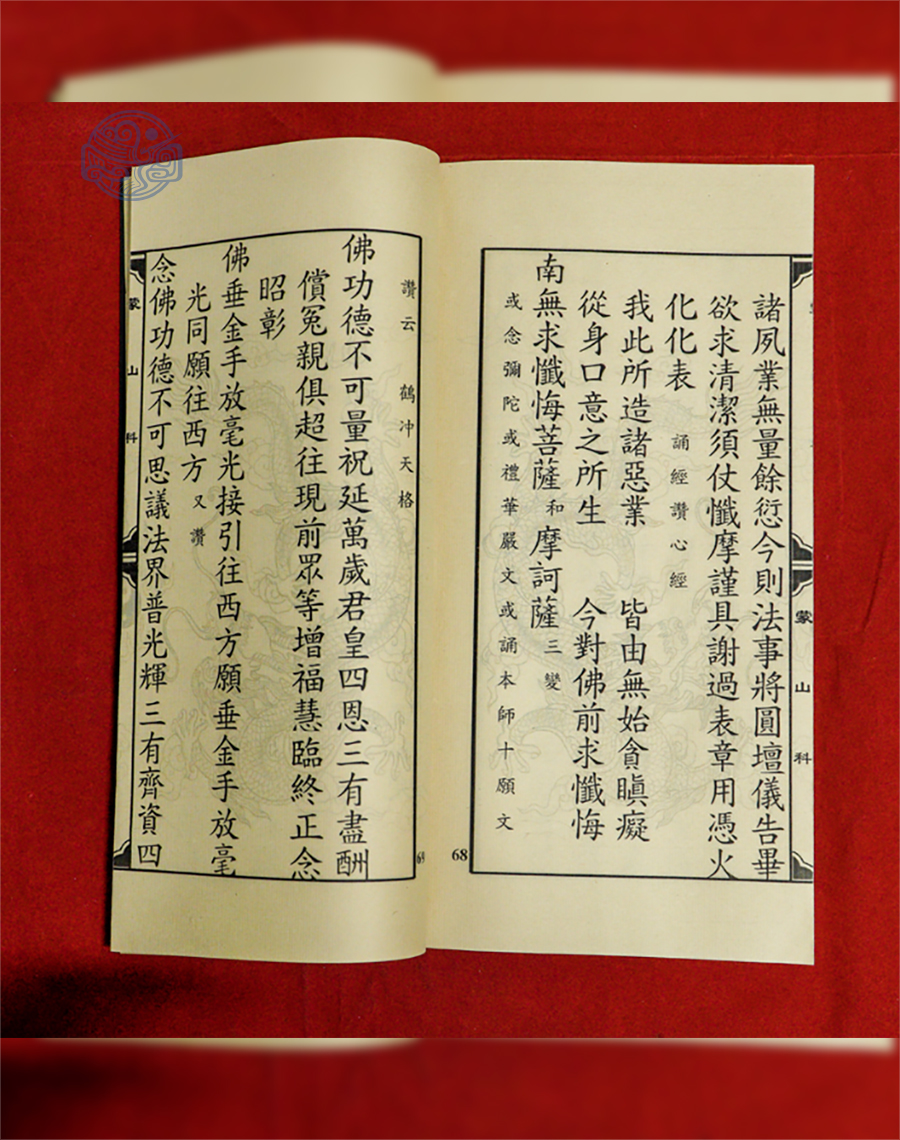 諸夙業無量餘愆今則法事將圓壇儀告畢
欲求清潔須仗懺摩謹具謝過表章用憑火
化化表 誦經讚心經
我此所造諸惡業 皆由無始貪瞋癡
從身口意之所生 今對佛前求懺悔
南無求懺悔菩薩 和 摩訶薩 三變
或念彌陀或禮華嚴文或誦本師十願文
68
蒙山科
讚云 鶴冲天格
佛功德不可量祝延萬歲君皇四恩三有盡酬
償冤親俱超往現前眾等增福慧臨終正念
昭彰
佛垂金手放毫光接引往西方願垂金手放毫
光同願往西方 又讚
念佛功德不可思議法界普光輝三有齊資四
69
蒙山科